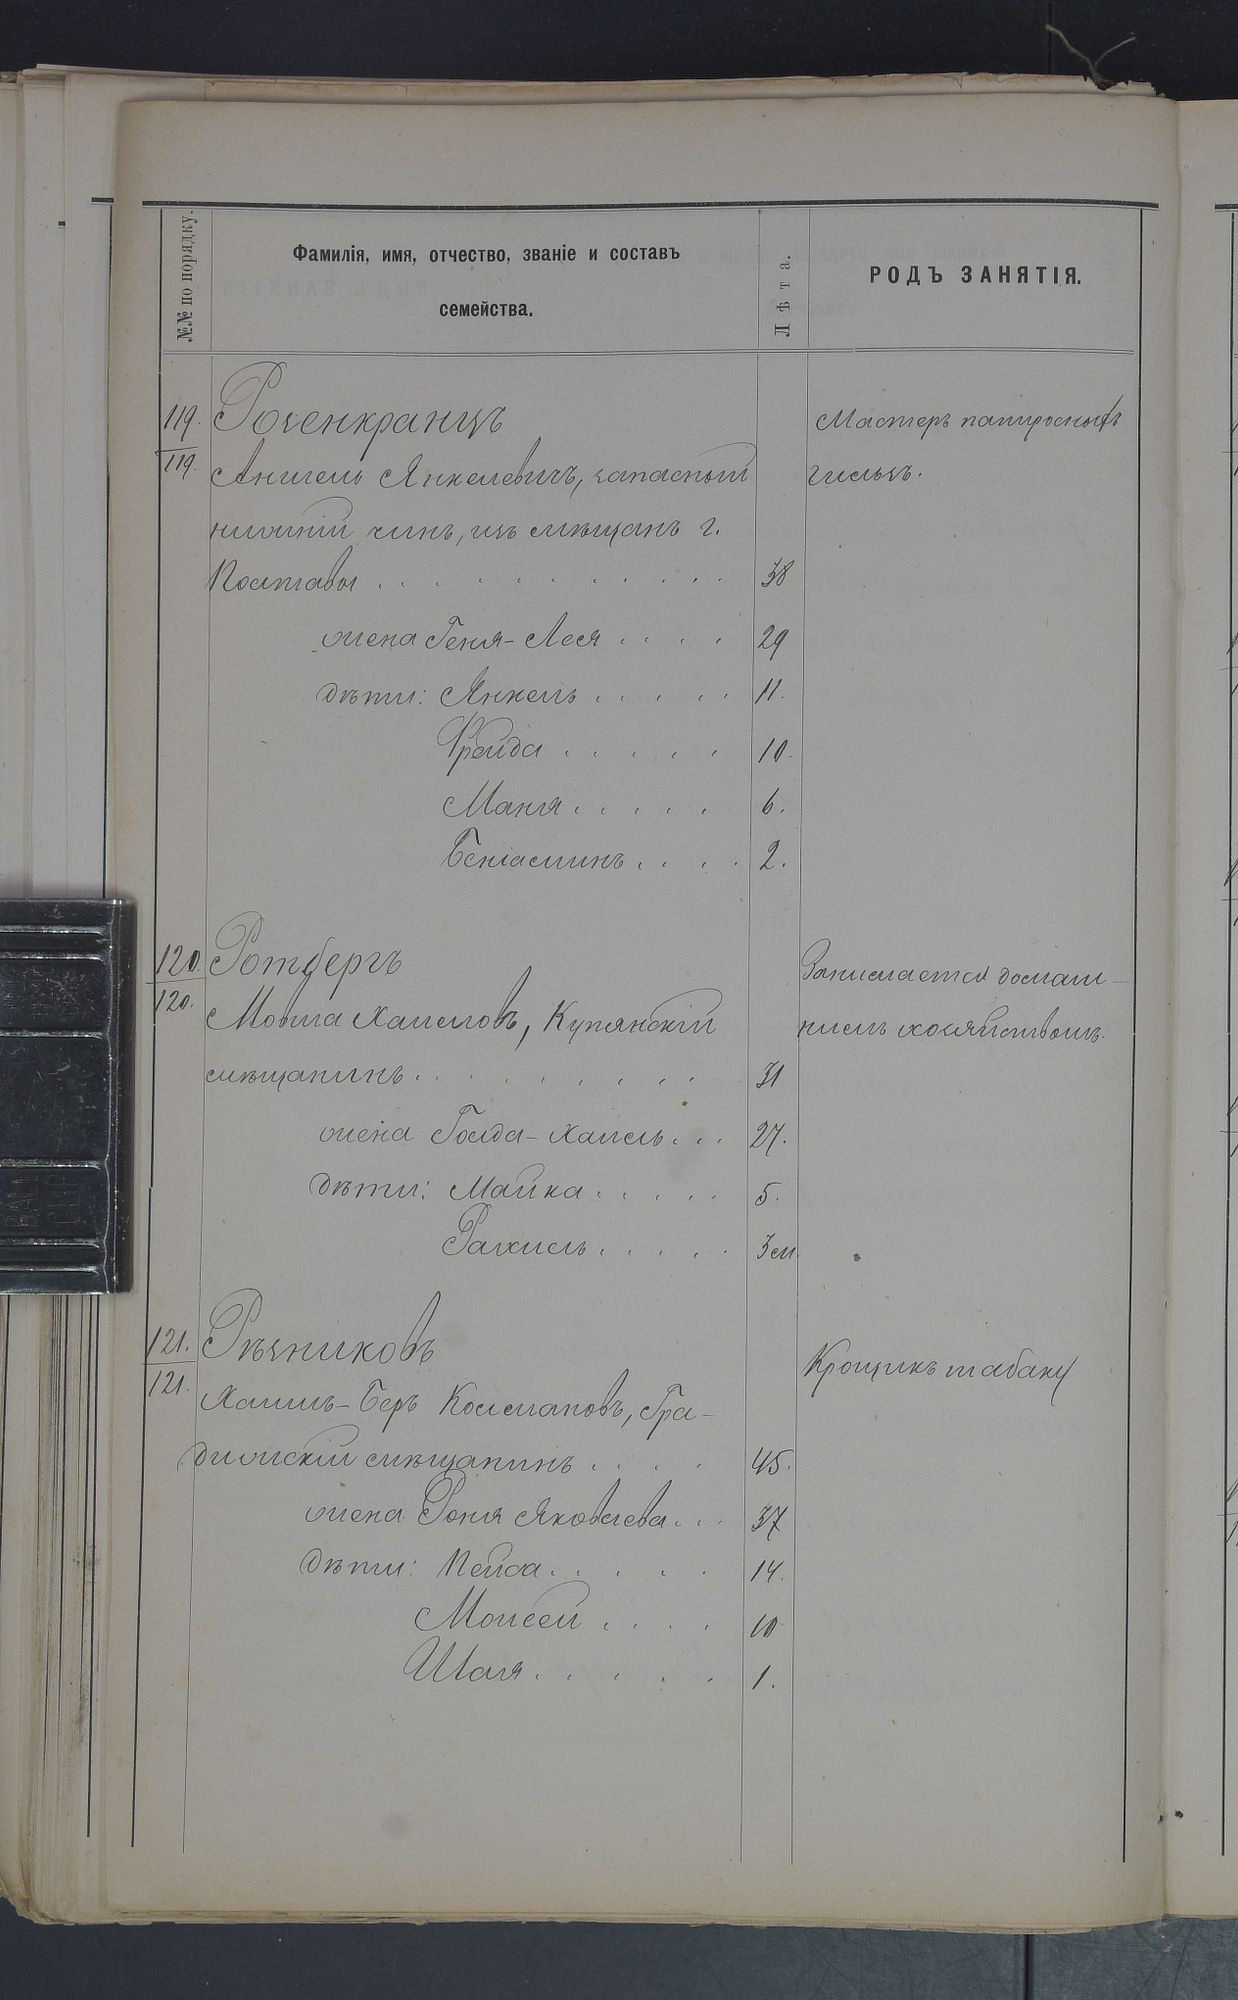 №№ по порядку.
Фамилія, имя, отчество, званіе и составъ
семейства.
Лѣта.
РОДЪ ЗАНЯТІЯ.
119. Розенкранцъ
Мастеръ папиросныхъ
119. Аншель Янкелевичъ, запасный
гильзъ.
нижній чинъ, изъ мѣщанъ г.
Полтавы . . . . . . . . . . . . 38
жена Геня-Лея . . . . 29
дѣти: Янкель . . . . . 11.
Фрейда . . . . . 10.
Маня . . . . . 6.
Беніаминъ . . . . 2.
120. Ротбергъ
Занимается домаш-
120. Мовша Хаимовъ, Купянскій
нимъ хозяйствомъ.
мѣщанинъ . . . . . . . . . 31
жена Голда-Хаися . . . 27.
дѣти: Майка . . . . . 5.
Рахиль . . . . . 3 м
121. Рѣзниковъ
Крощикъ табаку
121. Хаимъ-Беръ Колмановъ, Гра-
дижскій мѣщанинъ . . . . 45.
жена Роня Яковлева . . . 37
дѣти: Пейса . . . . . 14.
Моисей . . . . 10
Шая . . . . . 1.